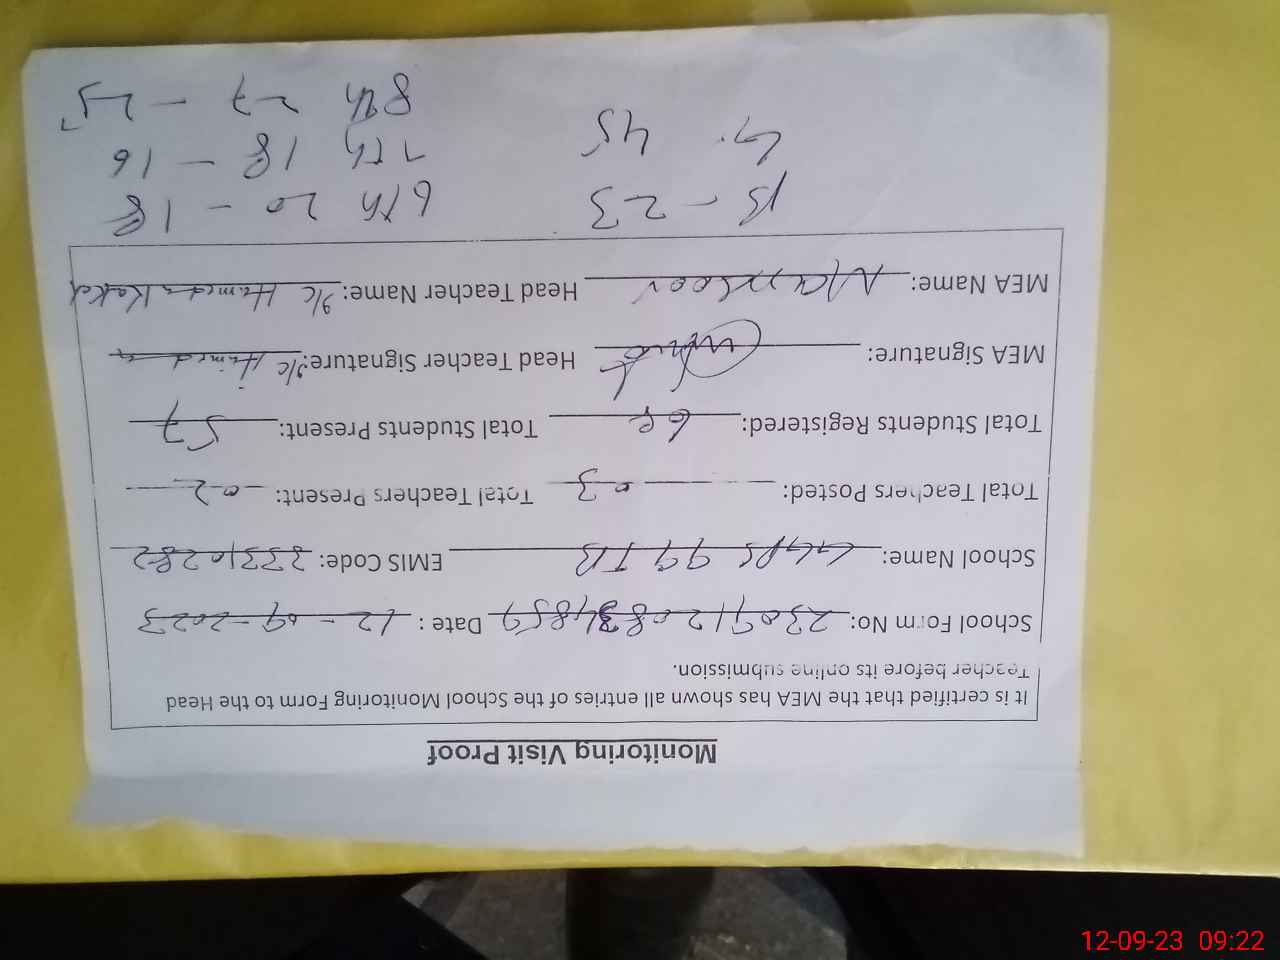 Monitoring Visit Proof
It is certified that the MEA has shown all entries of the School Monitoring Form to the Head
Teacher before its online submission.
School Form No: Date: 12-09-2023
School Name: EMIS Code: 33310282
Total Teachers Posted: 03 Total Teachers Present: 02
Total Students Registered: 68 Total Students Present: 57
MEA Signature: Head Teacher Signature: I/C
MEA Name: Head Teacher Name: I/C
B - 23 6th 20 - 18
G. 45 7th 18 - 16
8th 27 - 25
12-09-23 09:22